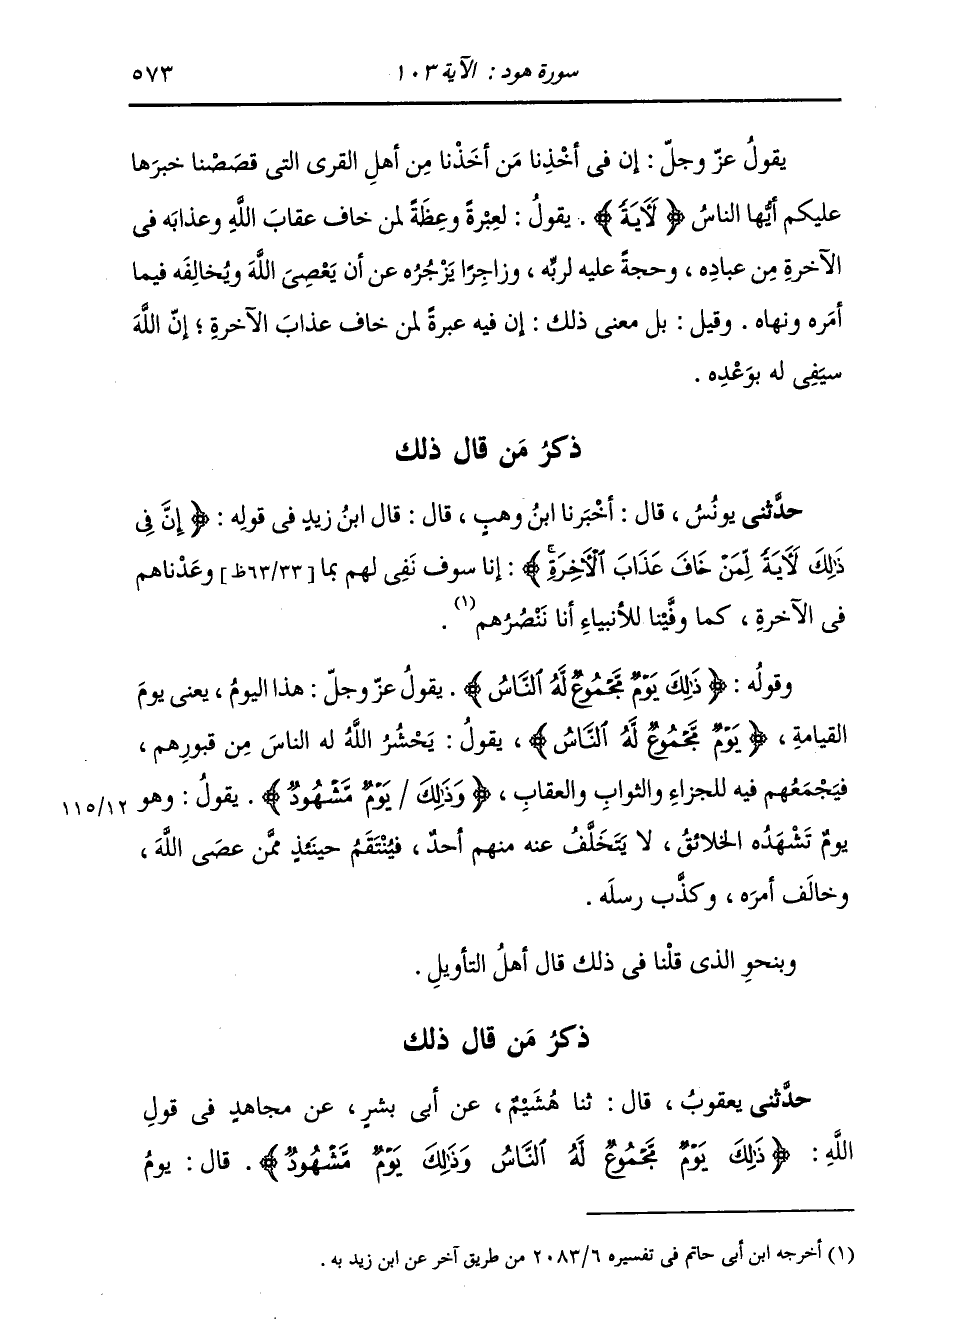 سورة هود : الآية ١٠٣ ٥٧٣
يقولُ عزّ وجلّ : إن فى أخْذِنا مَن أخَذْنا مِن أهلِ القرى التى قصَصْنا خبرَها
عليكم أيُّها الناسُ ﴿ لَآيَةً ﴾ . يقولُ : لعِبْرةً وعِظَةً لمن خاف عقابَ اللَّهِ وعذابَه فى
الآخرةِ مِن عبادِه ، وحجةً عليه لربِّه ، وزاجِرًا يَزْجُرُه عن أن يَعْصِىَ اللَّهَ ويُخالِفَه فيما
أمَره ونهاه . وقيل : بل معنى ذلك : إن فيه عبرةً لمن خاف عذابَ الآخرةِ ؛ إنّ اللَّهَ
سيَفِى له بوَعْدِه .
ذكرُ مَن قال ذلك
حدَّثنى يونُسُ ، قال : أخْبَرنا ابنُ وهبٍ ، قال : قال ابنُ زيدٍ فى قولِه : ﴿ إِنَّ فِى
ذَٰلِكَ لَآيَةً لِّمَنْ خَافَ عَذَابَ ٱلْآخِرَةِۚ ﴾ : إنا سوف نَفِى لهم بما [ ٦٣/٣٣ظ ] وعَدْناهم
فى الآخرةِ ، كما وفَّيْنا للأنبياءِ أنا نَنْصُرُهم(١) .
وقولُه : ﴿ ذَٰلِكَ يَوْمٌ مَّجْمُوعٌ لَّهُ ٱلنَّاسُ ﴾ . يقولُ عزّ وجلّ : هذا اليومُ ، يعنى يومَ
القيامةِ ، ﴿ يَوْمٌ مَّجْمُوعٌ لَّهُ ٱلنَّاسُ ﴾ ، يقولُ : يَحْشُرُ اللَّهُ له الناسَ مِن قبورِهم ،
فيَجْمَعُهم فيه للجزاءِ والثوابِ والعقابِ ، ﴿ وَذَٰلِكَ / يَوْمٌ مَّشْهُودٌ ﴾ . يقولُ : وهو ١١٥/١٢
يومٌ تَشْهَدُه الخلائقُ ، لا يَتَخَلَّفُ عنه منهم أحدٌ ، فيُنْتَقَمُ حينَئذٍ ممَّن عصَى اللَّهَ ،
وخالَف أمرَه ، وكذَّب رسلَه .
وبنحوِ الذى قلْنا فى ذلك قال أهلُ التأويلِ .
ذكرُ مَن قال ذلك
حدَّثنى يعقوبُ ، قال : ثنا هُشَيْمٌ ، عن أبى بشرٍ ، عن مجاهدٍ فى قولِ
اللَّهِ : ﴿ ذَٰلِكَ يَوْمٌ مَّجْمُوعٌ لَّهُ ٱلنَّاسُ وَذَٰلِكَ يَوْمٌ مَّشْهُودٌ ﴾ . قال : يومُ
(١) أخرجه ابن أبى حاتم فى تفسيره ٢٠٨٣/٦ من طريق آخر عن ابن زيد به .